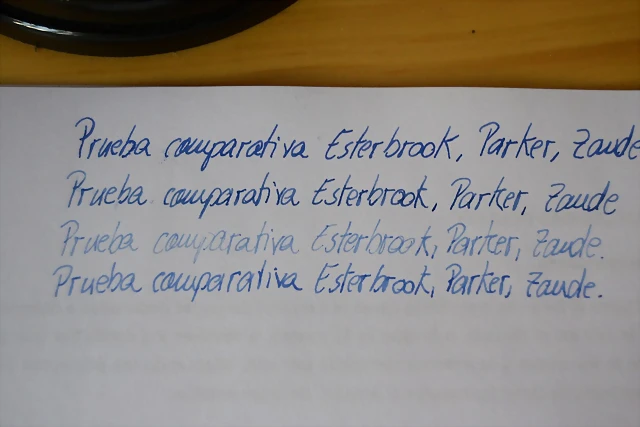 Prueba comparativa Esterbrook, Parker, Zaude
Prueba comparativa Esterbrook, Parker, Zaude
Prueba comparativa Esterbrook, Parker, Zaude.
Prueba comparativa Esterbrook, Parker, Zaude.